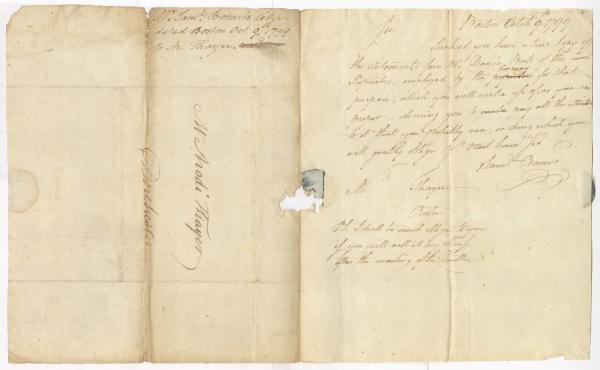 Mr Saml. Bower's Letter
dated Boston Oct. 9th 1799
to Mr. Thayer.
Mr Thayer
Dorchester
Boston Octobr 9th 1799
Sir
Inclosed you have a true Copy of
the Statements from Mr. Davis, of the
employed by the for that
purpose, which you will make use of as you see
proper - desiring you to pay all the attention
to it that you possibly can, in doing which you
will greatly oblige Yr Most hume Ser
Saml.
Mr Thayer
P.S. I shall be much oblige to you
if you will call at my House
after the meeting of the